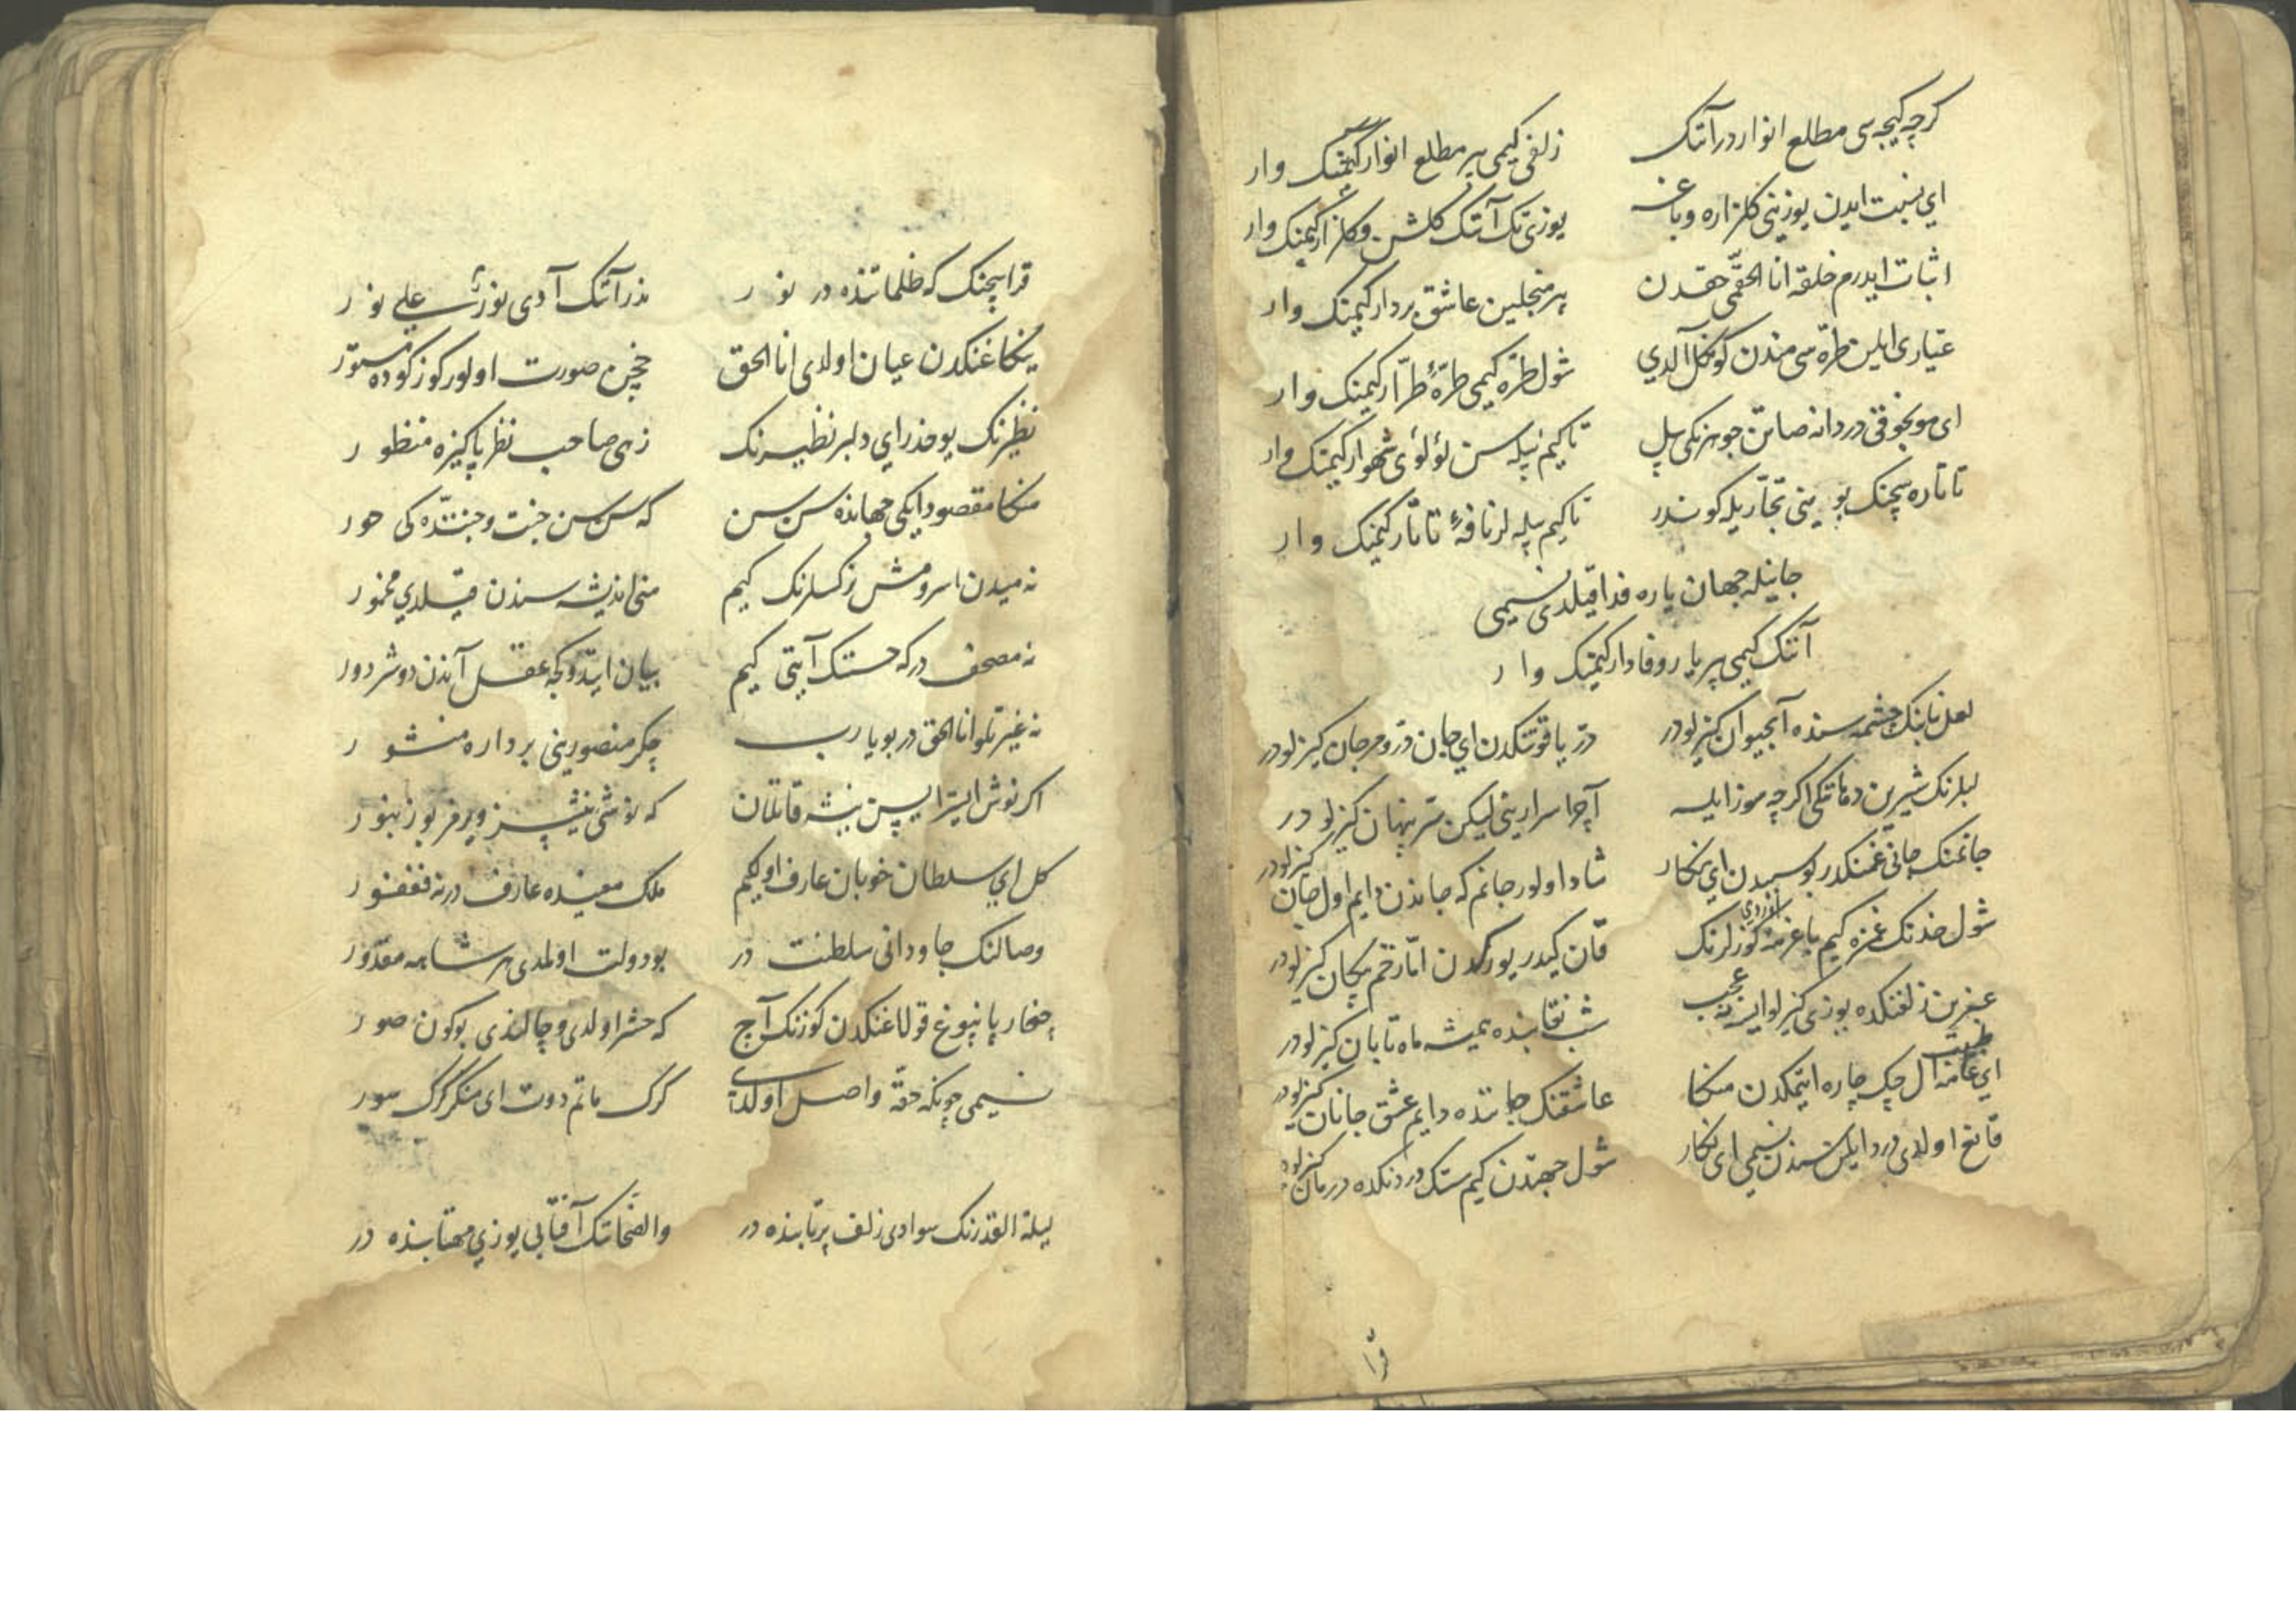 کرچه کیجه سی مطلع انوار در آنک زلفی کیمی بیر مطلع انوار کیمنک وار
ای نسبت ایدن یوزینی کلزاره و باغه یوزی تک آنک کلشن و کلزار کیمنک وار
اثبات ایدرم خلقه انا الحقّمی حقدن بیر منجلین عاشق بردار کیمنک وار
عیّاری ایلن طرّه سی مندن کونکل آلدی شول طرّه کیمی طرّهٔ طرّار کیمنک وار
ای مونجوقی دردانه صاتن جوهرنکی بیل تا کیم بیله سن لؤلؤی شهوار کیمنک وار
تاتاره سچنک بویینی تجّار یله کوندر تا کیم بیله لر نافهٔ تاتار کیمنک وار
جانیله جهان یاره فدا قیلدی نسیمی
آنک کیمی بیر یار وفادار کیمنک وار
لعل نابنک چشمه سنده آبحیوان کیزلودر درّ یاقوتنکدن ای جان درّ و مرجان کیزلودر
لبلرنک شیرین دهاننکی اکرچه موز ایله آچا اسرارینی لیکن سرّ پنهان کیزلودر
جانمنک جانی غمنکدر بو سبدن ای نکار شاد اولور جانم که جاندن دایم اول جان کیزلودر
شول خدنک غمزه کیم باغرمه اوردی کوزلرنک قان کیدر یورکدن امّا زخم پیکان کیزلودر
عنبرین زلفنکده یوزی کیزلو ایسه نه عجب شب نقابنده همیشه ماه تابان کیزلودر
ای طبیب عامّه ال چک چاره ایتمکدن منکا عاشقنک جاننده دایم عشق جانان کیزلودر
قانغ اولدی درد ایلن سندن نسیمی ای نکار شول جهتدن کیم سنک دردنکده درمان کیزلودر
قرا
قرا سچنک که ظلماتنده در نور مذر آنک آدی نورٌ علی نور
ینکاغنکدن عیان اولدی انا الحق نچین صورت اولور کوزکوده مستور
نظیرنک یوخدر ای دلبر نظیرنک زهی صاحب نظر پاکیزه منظور
منکا مقصود ایکی جهانده سن سن که سن سن جنت و جنتده کی حور
نه میدن اسرومش نرکسلرنک کیم منی اندیشه سندن قیلدی مخمور
نه مصحف در که حسننک آیتی کیم بیان ایتدوکجه عقل آندن دوشر دور
نه غیرتلو انا الحق در بو یا رب چکر منصورینی برداره منشور
اکر نوش ایسترایسن نیشه قاتلان که نوشی نیشسز ویرمز بو زنبور
کل ای سلطان خوبان عارف اول کیم ملک معینده عارف در نه فغفور
وصالنک جاودانی سلطنت در بو دولت اولمدی هر شاهه مقدور
چخار پانبوغ قولاغنکدن کوزنک آچ که حشر اولدی و چالندی بوکون صور
نسیمی چونکه حقّه واصل اولدی کرک ماتم دوت ای منکر کرک سور
لیلة القدرنک سوادی زلف پرتابنده در والضحانک آفتابی یوزی مهتابنده در